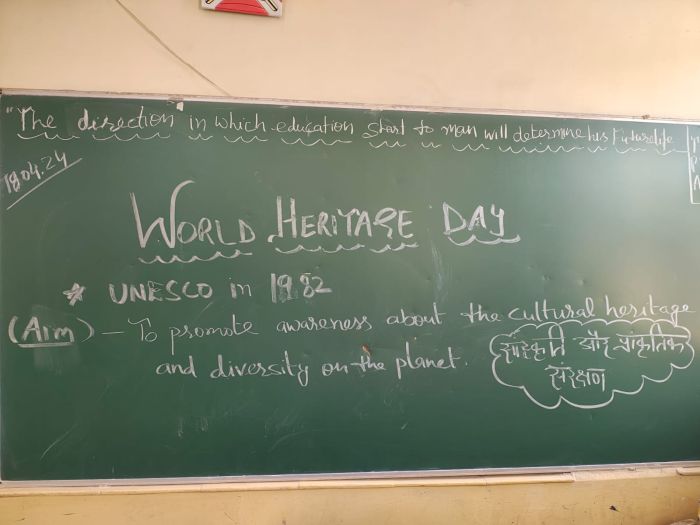 "The direction in which education start to man will determine his Future life
18.04.24
WORLD HERITAGE DAY
* UNESCO in 1982
(Aim) - To promote awareness about the cultural heritage
and diversity on the planet.
सांस्कृति और प्रांकृतिक
संरक्षण